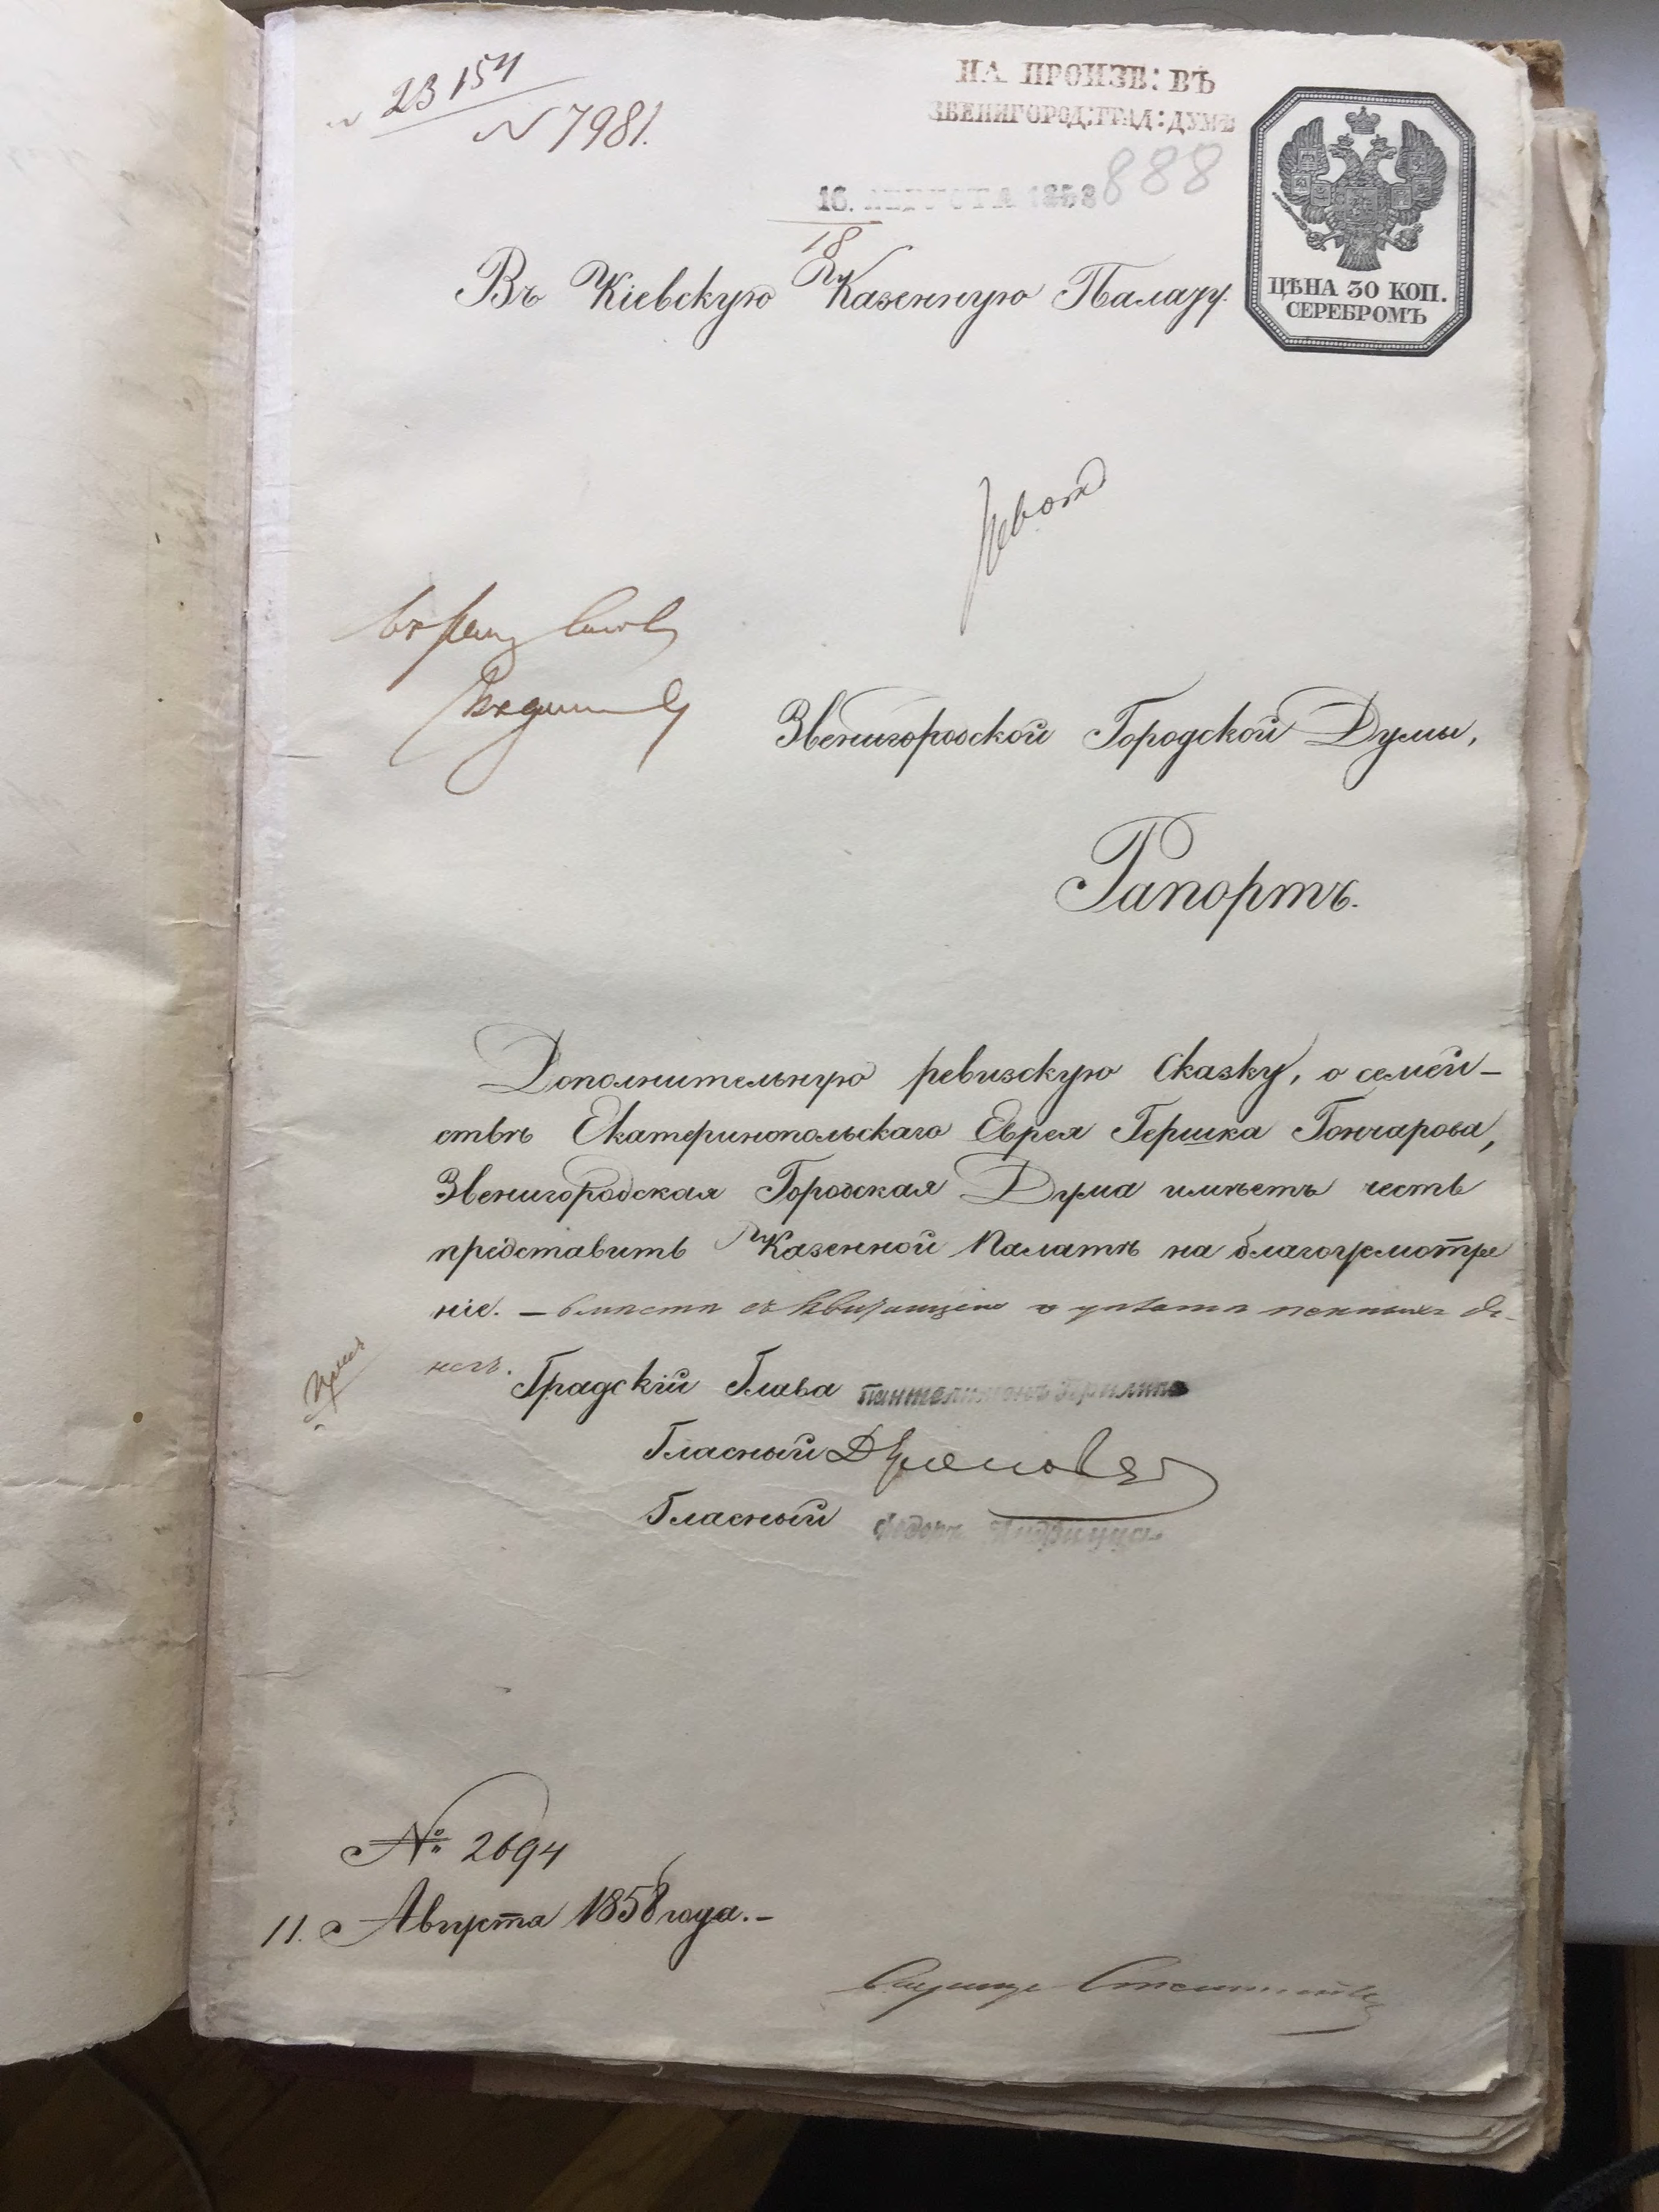 23154
N 7981.
НА ПРОИЗВ: ВЪ
ЗВЕНИГОРОД: ГРАД: ДУМѢ
888
16. АВГУСТА 1858
18
ЦѢНА 30 КОП.
СЕРЕБРОМЪ
Въ Кіевскую Казенную Палату.
Звенигородской Городской Думы,
Рапортъ.
Дополнительную ревизскую сказку, о семей-
ствѣ Екатеринопольскаго Еврея Гершка Гончарова,
Звенигородская Городская Дума имѣетъ честь
представить Казенной Палатѣ на благоусмотре
ніе. – вмѣстѣ съ квитанціею о уплатѣ пенныхъ де-
негъ.
Градскій Глава Пантелимонъ
Гласный
Гласный Федоръ
№ 2694
11. Августа 1858 года. –